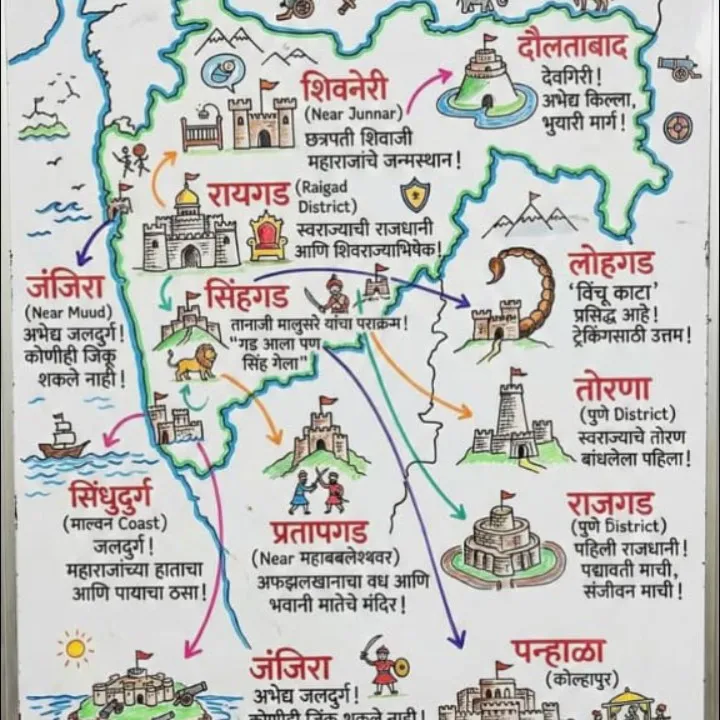 शिवनेरी
(Near Junnar)
छत्रपती शिवाजी
महाराजांचे जन्मस्थान!
दौलताबाद
देवगिरी!
अभेद्य किल्ला,
भुयारी मार्ग!
रायगड (Raigad
District)
स्वराज्याची राजधानी
आणि शिवराज्याभिषेक!
जंजिरा
(Near Muud)
अभेद्य जलदुर्ग!
कोणीही जिंकू
शकले नाही!
सिंहगड
तानाजी मालुसरे यांचा पराक्रम!
"गड आला पण
सिंह गेला"
लोहगड
'विंचू काटा'
प्रसिद्ध आहे!
ट्रेकिंगसाठी उत्तम!
तोरणा
(पुणे District)
स्वराज्याचे तोरण
बांधलेला पहिला!
सिंधुदुर्ग
(माल्वन Coast)
जलदुर्ग!
महाराजांच्या हाताचा
आणि पायाचा ठसा!
प्रतापगड
(Near महाबबलेश्थवर)
अफझलखानाचा वध आणि
भवानी मातेचे मंदिर!
राजगड
(पुणे District)
पहिली राजधानी!
पद्यावती माची,
संजीवन माची!
जंजिरा
अभेद्य जलदुर्ग!
कोणीही जिंकू शकले नाही!
पन्हाळा
(कोल्हापुर)